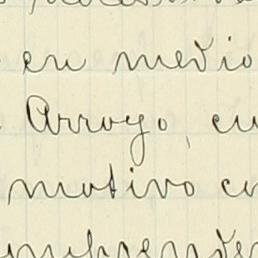 en medio
Arroyo, cu
motivo cu